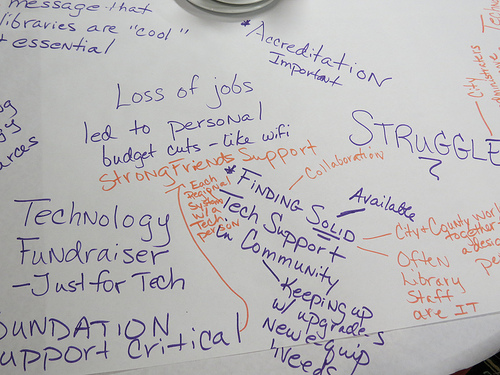 message that
libraries are "cool"
essential
* Accreditation
Important
Loss of jobs
led to personal
budget cuts - like wifi
STRUGGLE
?
Strong Friends Support
Collaboration
Each
Regional
System
w/a
Tech
person
* FINDING SOLID
Tech Support
in Community
Available
Keeping up
w/ upgrades
New equip
Needs
City + County work
together
Often
Library
Staff
are IT
City
Technology
Fundraiser
- Just for Tech
FOUNDATION
Support Critical